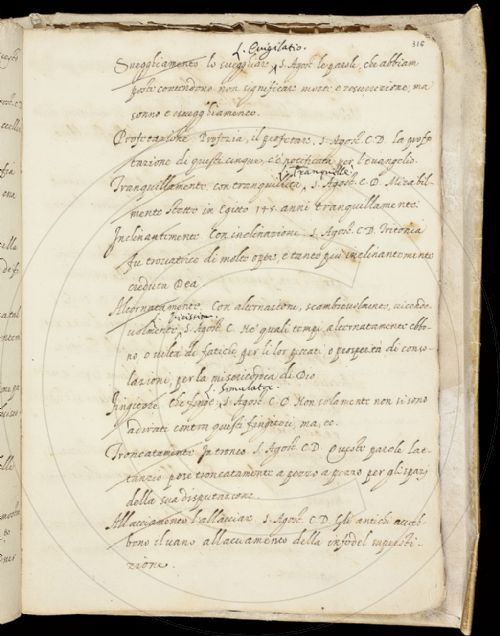 316
L. Euigilatio.
Sueggliamento lo suegliare, S. Agost. le parole, che abbiam
poste contendono non significare morte e resurrezione, ma
sonno e sueggliamento.
Profetazione Profezia, il profetare. S. Agost. C. D. la profe
tazione di questi cinque, è notificata per l'euangelio.
L. Tranquille
Tranquillamente, con tranquillità, S. Agost. C. D. Mirabil
mente stette in Egitto 145 anni tranquillamente.
Inclinantemente Con inclinazione. S. Agost. C. D.
fu trouatrice di molte opre, e tanto più inclinantemente
creduta Dea
Alternatamente. Con alternazioni, scambieuolmente,
uolmente, S. Agost. C. Ne quali tempi alternatamente ebbo
no o uilta di fatiche per li lor peccati, o prosperità di conso
lazioni, per la misericordia di Dio
L. Simulator
Fingitore che finge, S. Agost. C. D. Non solamente non si sono
adirati contra questi fingitori, ma, ec.
Troncatamente In tronco. S. Agost. C. D. Queste parole lat
tanzio pose troncatamente a pezzo a pezzo per gli spazj
della sua disputazione.
Allacciamento l'allacciar. S. Agost. C. D. Gli antichi
bono il uano allacciamento della infedel supersti
zione.